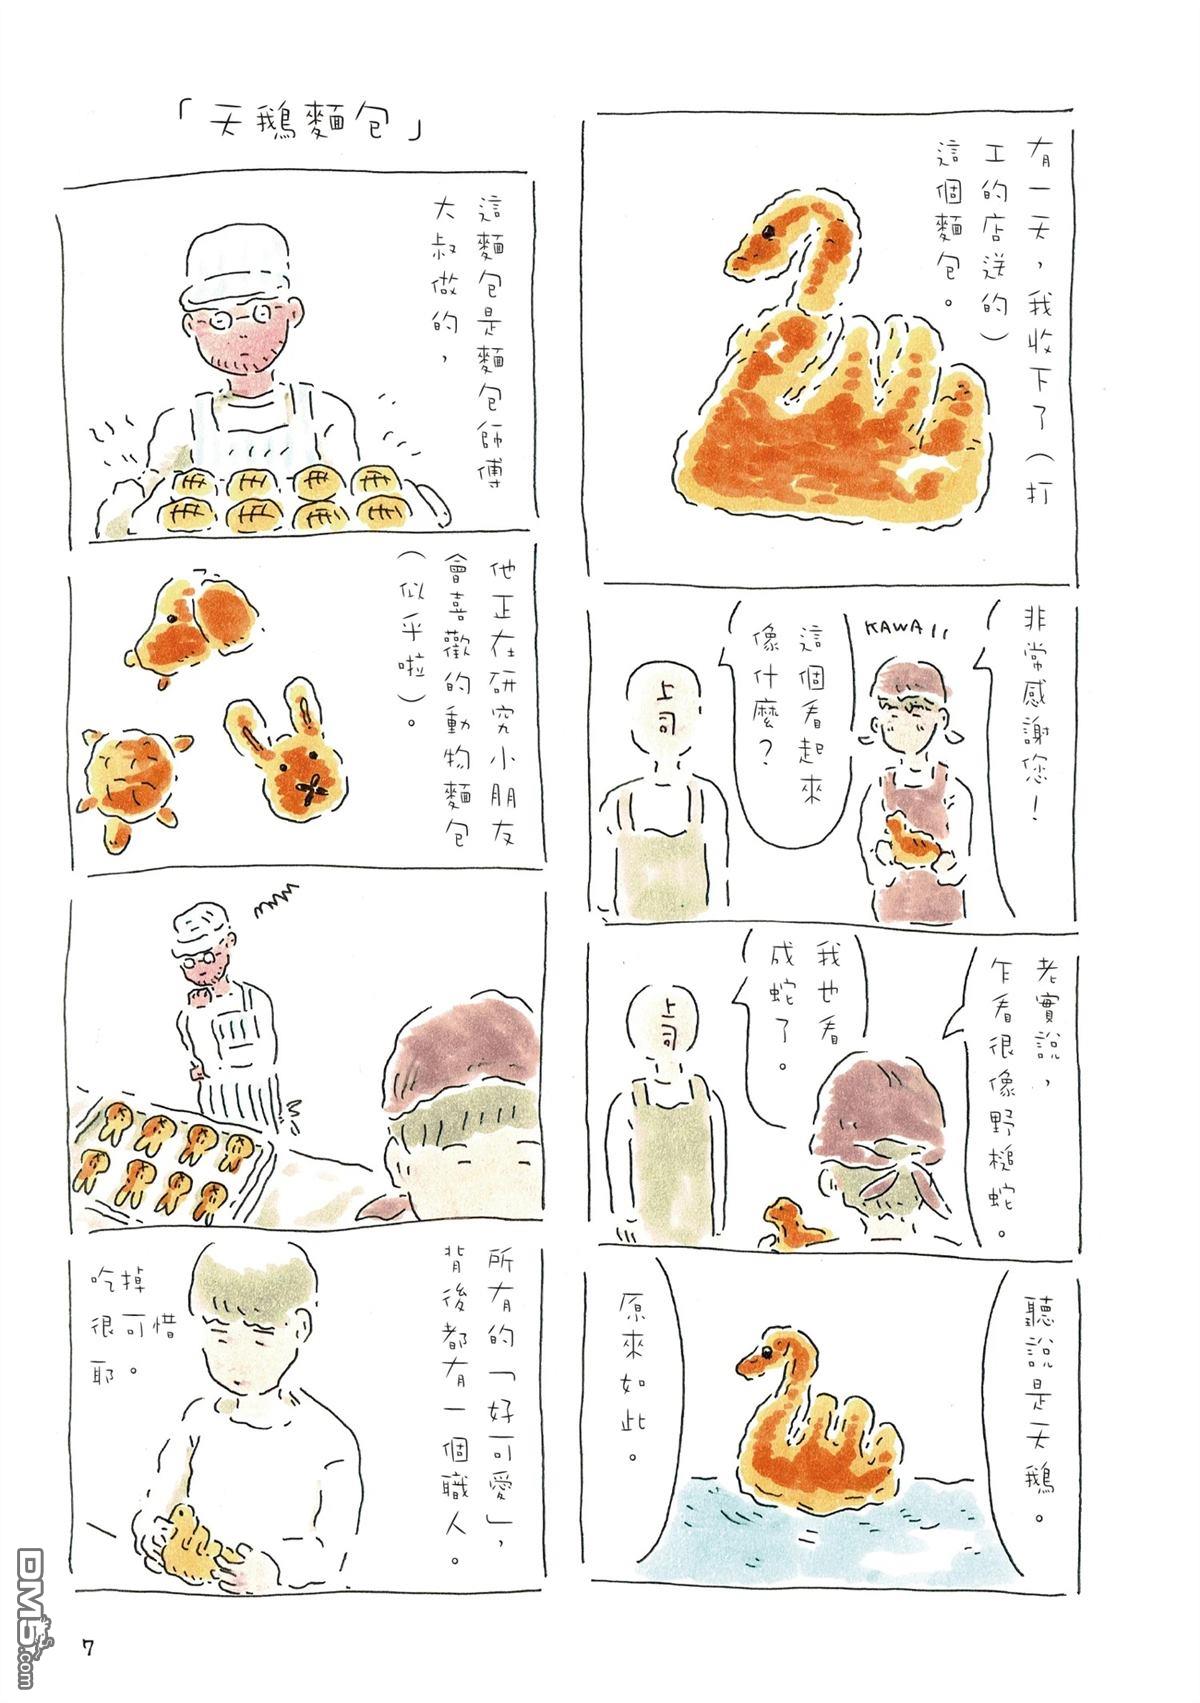 「天鵝麵包」
有一天，我收下了（打
工的店送的）
這個麵包。
非常感謝您！
KAWAII
這個看起來
像什麼？
上司
老實說，
乍看很像野槌蛇。
我也看
成蛇了。
上司
聽說是天鵝。
原來如此。
這麵包是麵包師傅
大叔做的，
他正在研究小朋友
會喜歡的動物麵包
（似乎啦）。
所有的「好可愛」，
背後都有一個職人。
吃掉
很可惜
耶。
7
DM5.com